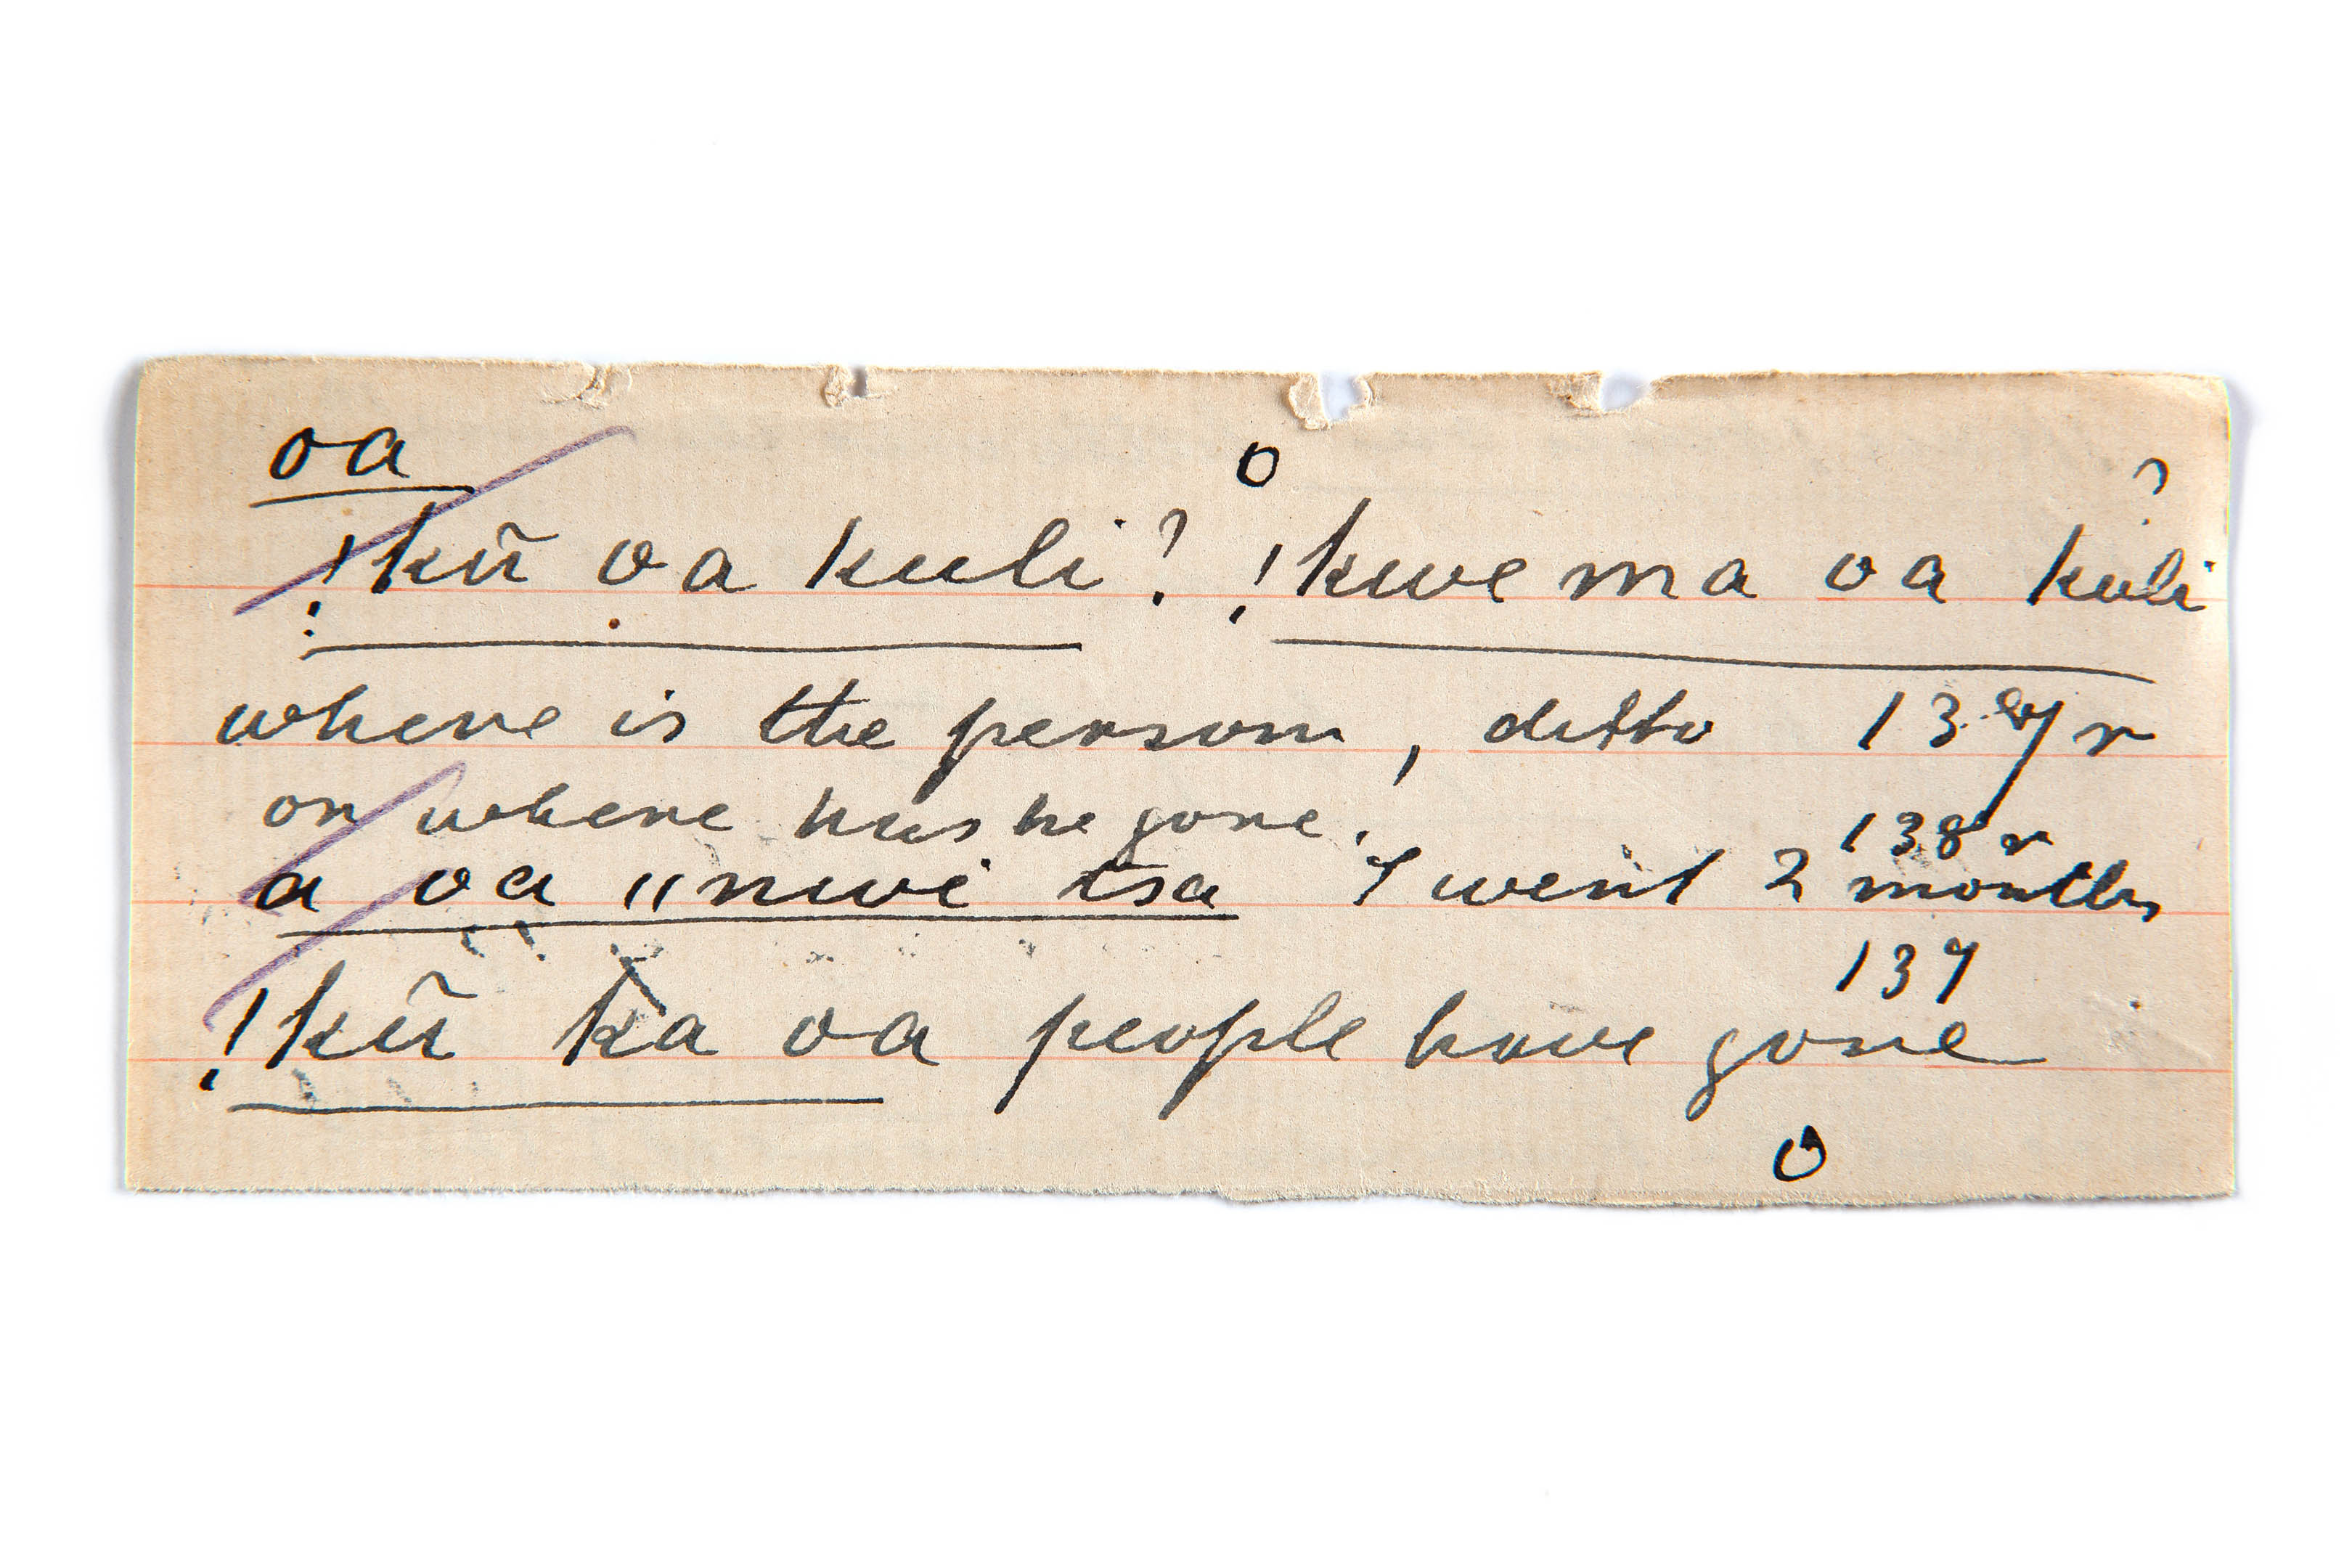 oa o
!kũ oa kuli? !kwe ma oa kuli?
where is the person, ditto r
or where has he gone. 138 r
a oa ‖nwi tsa I went 2 months
137
!kũ ka oa people have gone
o